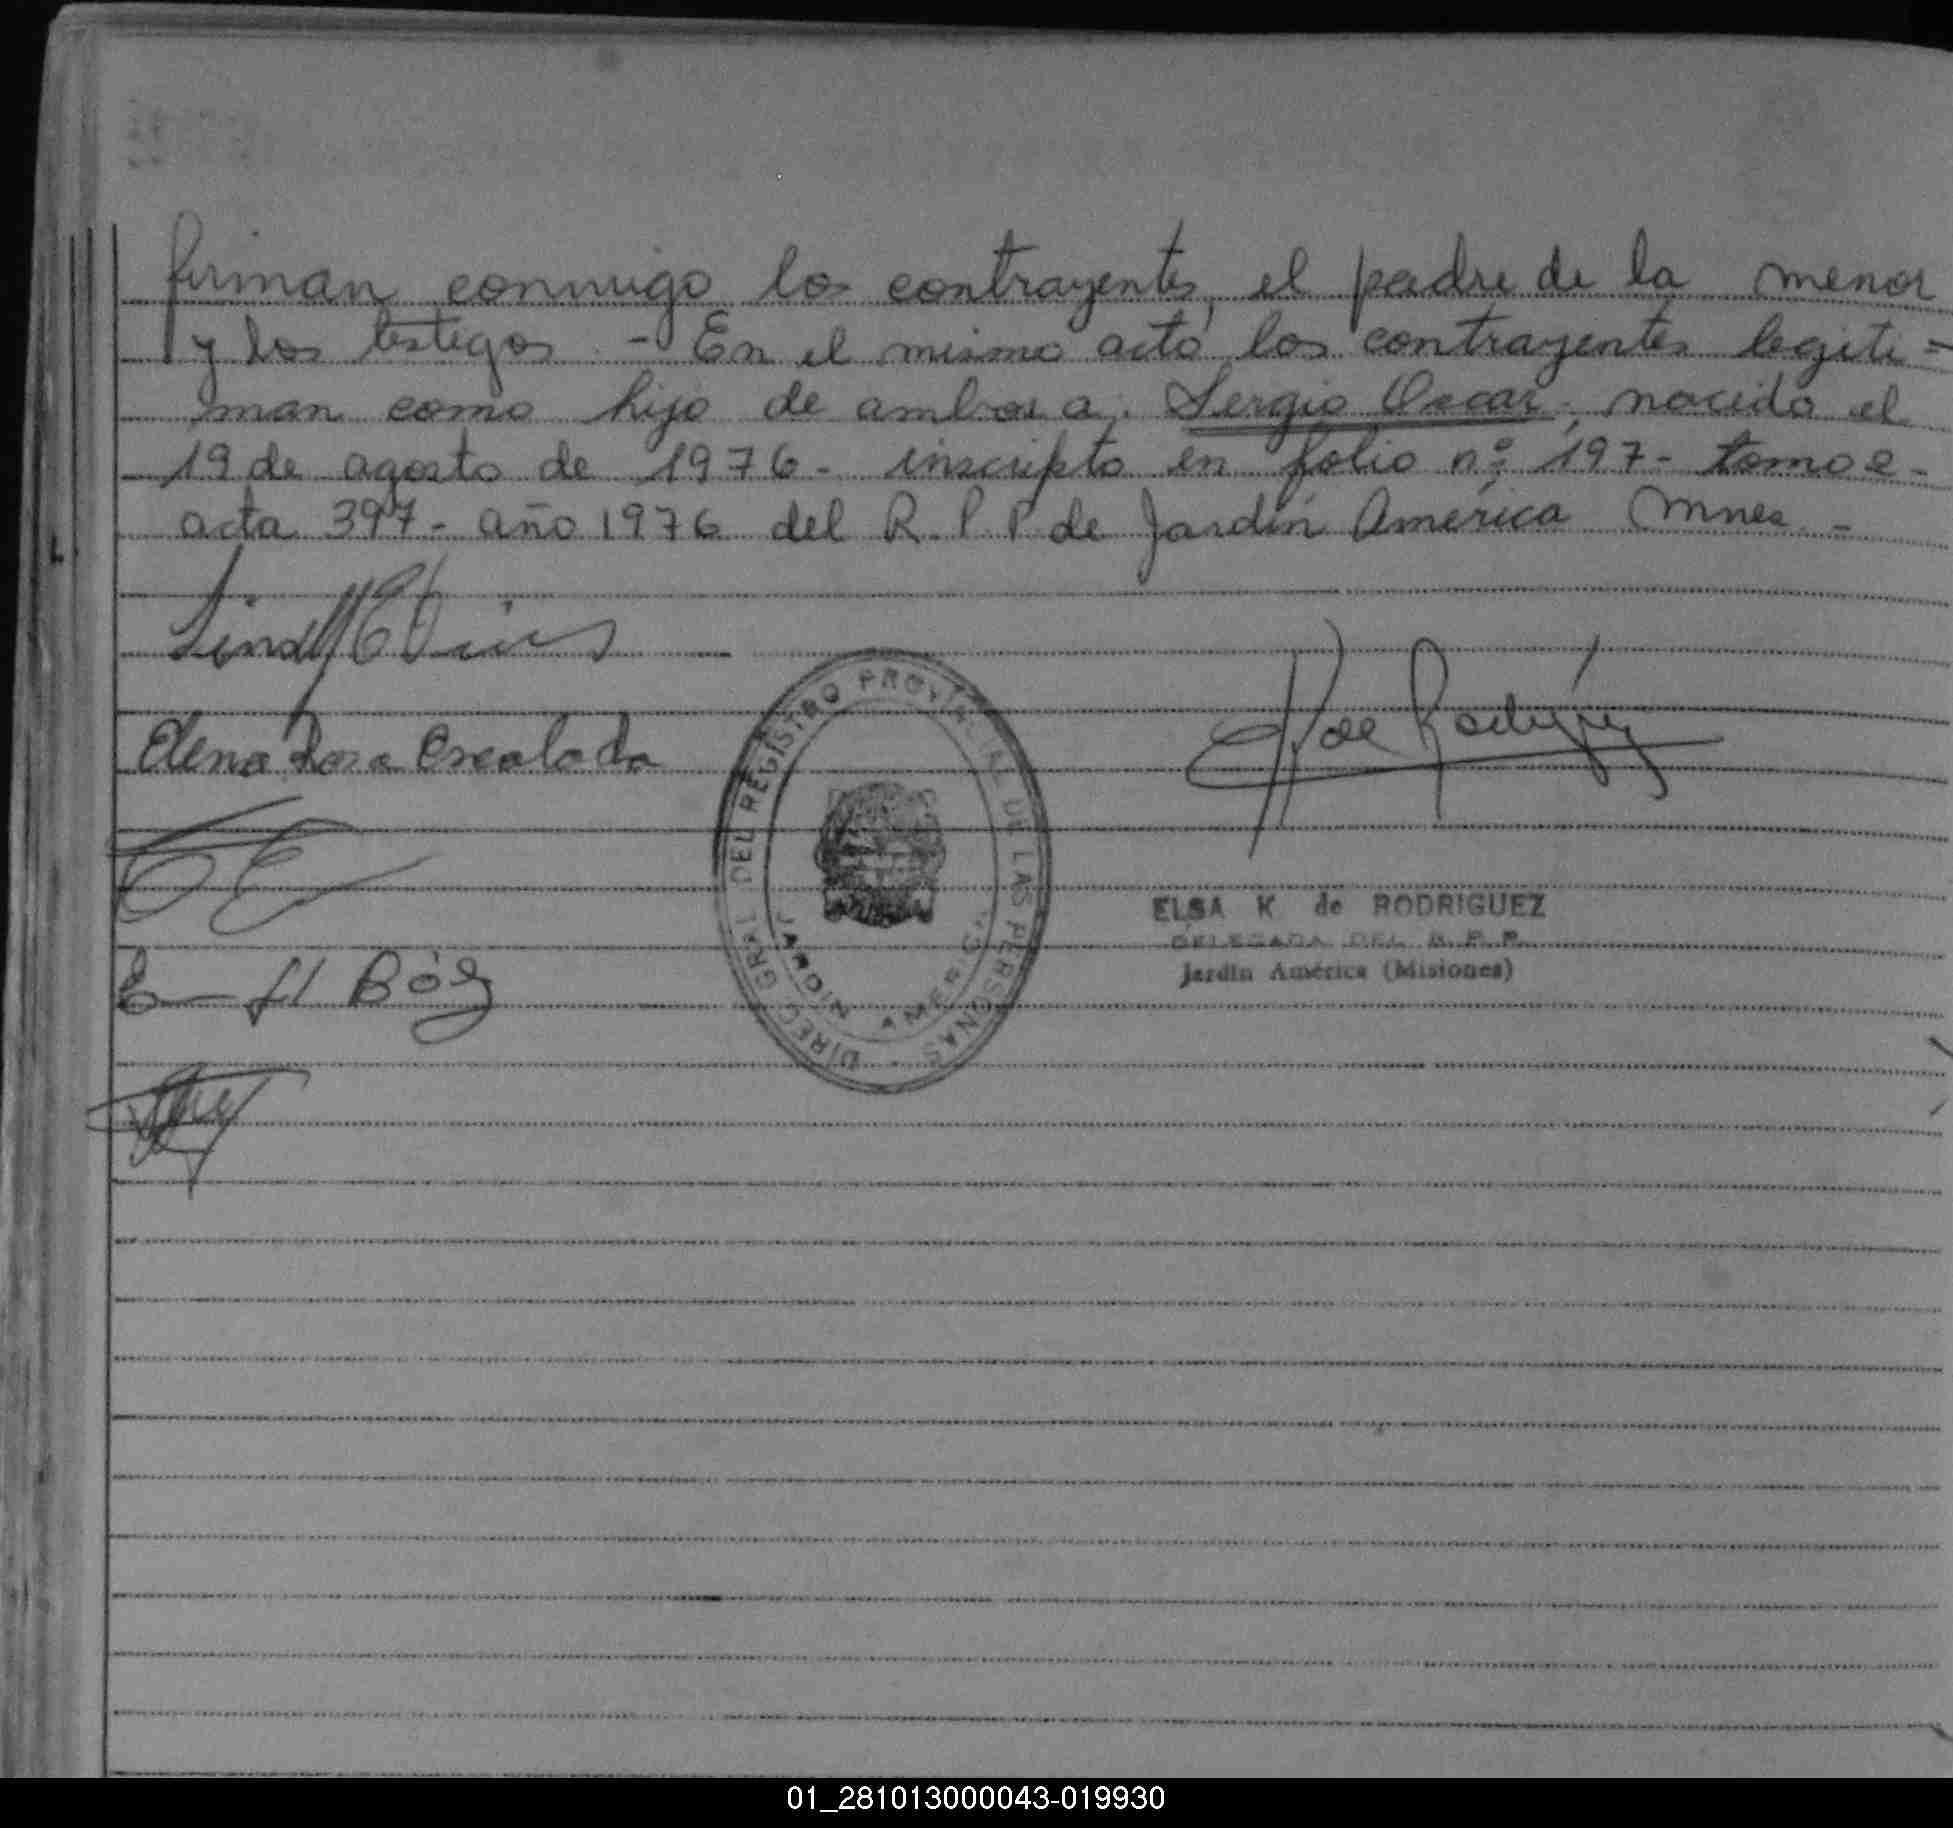 firman conmigo los contrayentes, el padre de la menor
y los testigos. - En el mismo acto los contrayentes legiti=
man como hijo de ambos a: Sergio Oscar, nacido el
19 de agosto de 1976- inscripto en folio nº 197- tomo 2-
acta 397- año 1976 del R.P.P de Jardín América Mnes. -
Elena Rosa Escalada
DIREC GRAL DEL REGISTRO PROVINCIAL DE LAS PERSONAS
JARDIN AMERICA
K de Rodriguez
ELSA K de RODRIGUEZ
DELEGADA DEL R. P. P.
Jardín América (Misiones)
01_281013000043-019930